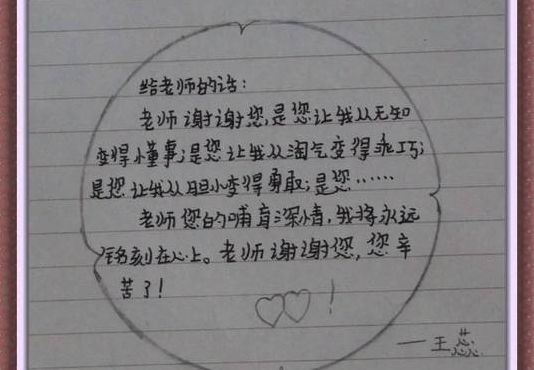 给老师的话：
老师谢谢您,是您让我从无知
变得懂事;是您让我从淘气变得乖巧;
是您让我从胆小变得勇敢;是您……
老师您的哺育深情,我将永远
铭刻在心上。老师谢谢您,您辛
苦了!
!
—王蕊